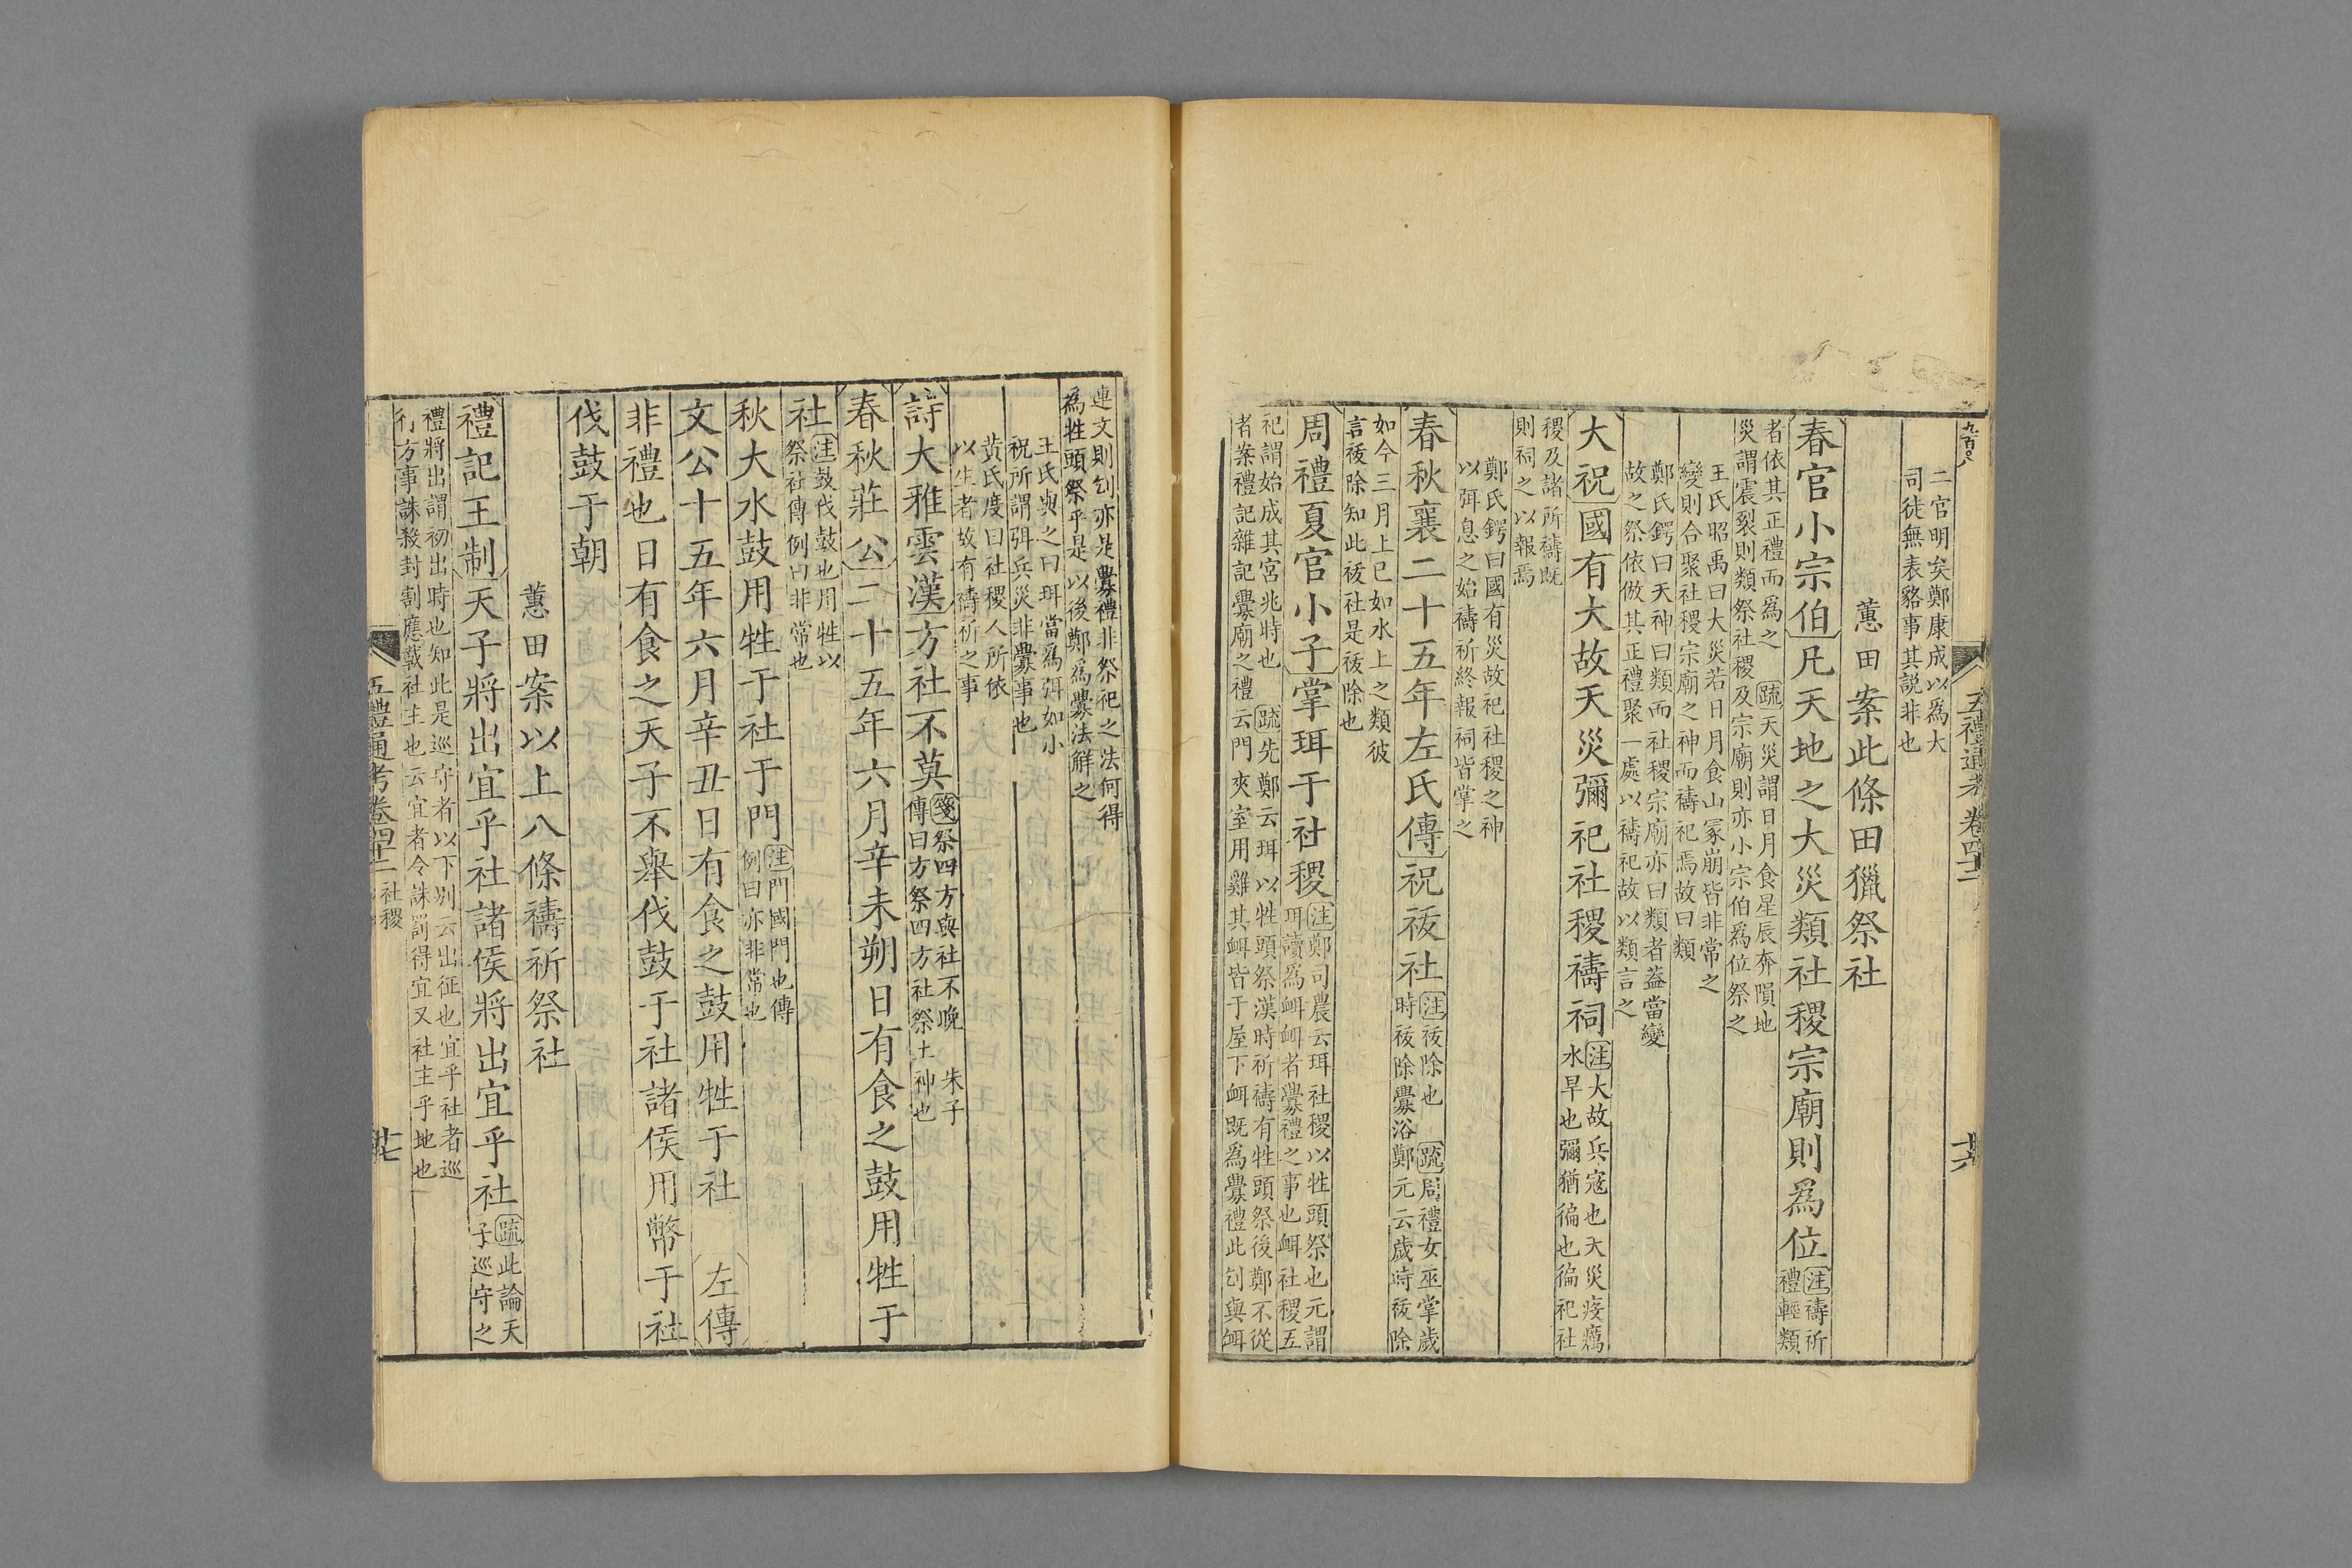 五禮通考卷四十二
二官明矣鄭康成以為大
司徒無表貉事其說非也
蕙田案此條田獵祭社
春官小宗伯凡天地之大烖類社稷宗廟則為位
注禱祈
禮輕類
者依其正禮而為之 疏天災謂日月食星辰奔隕地
災謂震裂則類祭社稷及宗廟則亦小宗伯為位祭之
王氏昭禹曰大災若日月食山冢崩皆非常之
變則合聚社稷宗廟之神而禱祀焉故曰類
鄭氏鍔曰天神曰類而社稷宗廟亦曰類者葢當變
故之祭依倣其正禮聚一處以禱祀故以類言之
大祝國有大故天災彌祀社稷禱祠
注大故兵寇也天災疫癘
水旱也彌猶徧也徧祀社
稷及諸所禱既
則祠之以報焉
鄭氏鍔曰國有災故祀社稷之神
以弭息之始禱祈終報祠皆掌之
春秋襄二十五年左氏傳祝祓社
注祓除也 疏周禮女巫掌歲
時祓除釁浴鄭元云歲時祓除
如今三月上巳如水上之類彼
言祓除知此祓社是祓除也
周禮夏官小子掌珥于社稷
注鄭司農云珥社稷以牲頭祭也元謂
珥讀為衈衈者釁禮之事也衈社稷五
祀謂始成其宮兆時也 疏先鄭云珥以牲頭祭漢時祈禱有牲頭祭後鄭不從
者案禮記雜記釁廟之禮云門夾室用雞其衈皆于屋下衈既為釁禮此刉與衈
連文則刉亦是釁禮非祭祀之法何得
為牲頭祭乎是以後鄭為釁法解之
王氏與之曰珥當為弭如小
祝所謂弭兵災非釁事也
黃氏度曰社稷人所依
以生者故有禱祈之事
詩大雅雲漢方社不莫
箋祭四方與社不晚 朱子
傳曰方祭四方社祭土神也
春秋莊公二十五年六月辛未朔日有食之鼓用牲于
社
注鼓伐鼓也用牲以
祭社傳例曰非常也
秋大水鼓用牲于社于門
注門國門也傳
例曰亦非常也
文公十五年六月辛丑日有食之鼓用牲于社 左傳
非禮也日有食之天子不舉伐鼓于社諸侯用幣于社
伐鼓于朝
蕙田案以上八條禱祈祭社
禮記王制天子將出宜乎社諸侯將出宜乎社
疏此論天
子巡守之
禮將出謂初出時也知此是巡守者以下別云出征也宜乎社者巡
行方事誅殺封割應載社主也云宜者令誅罰得宜又社主乎地也
五禮通考卷四十二 社稷